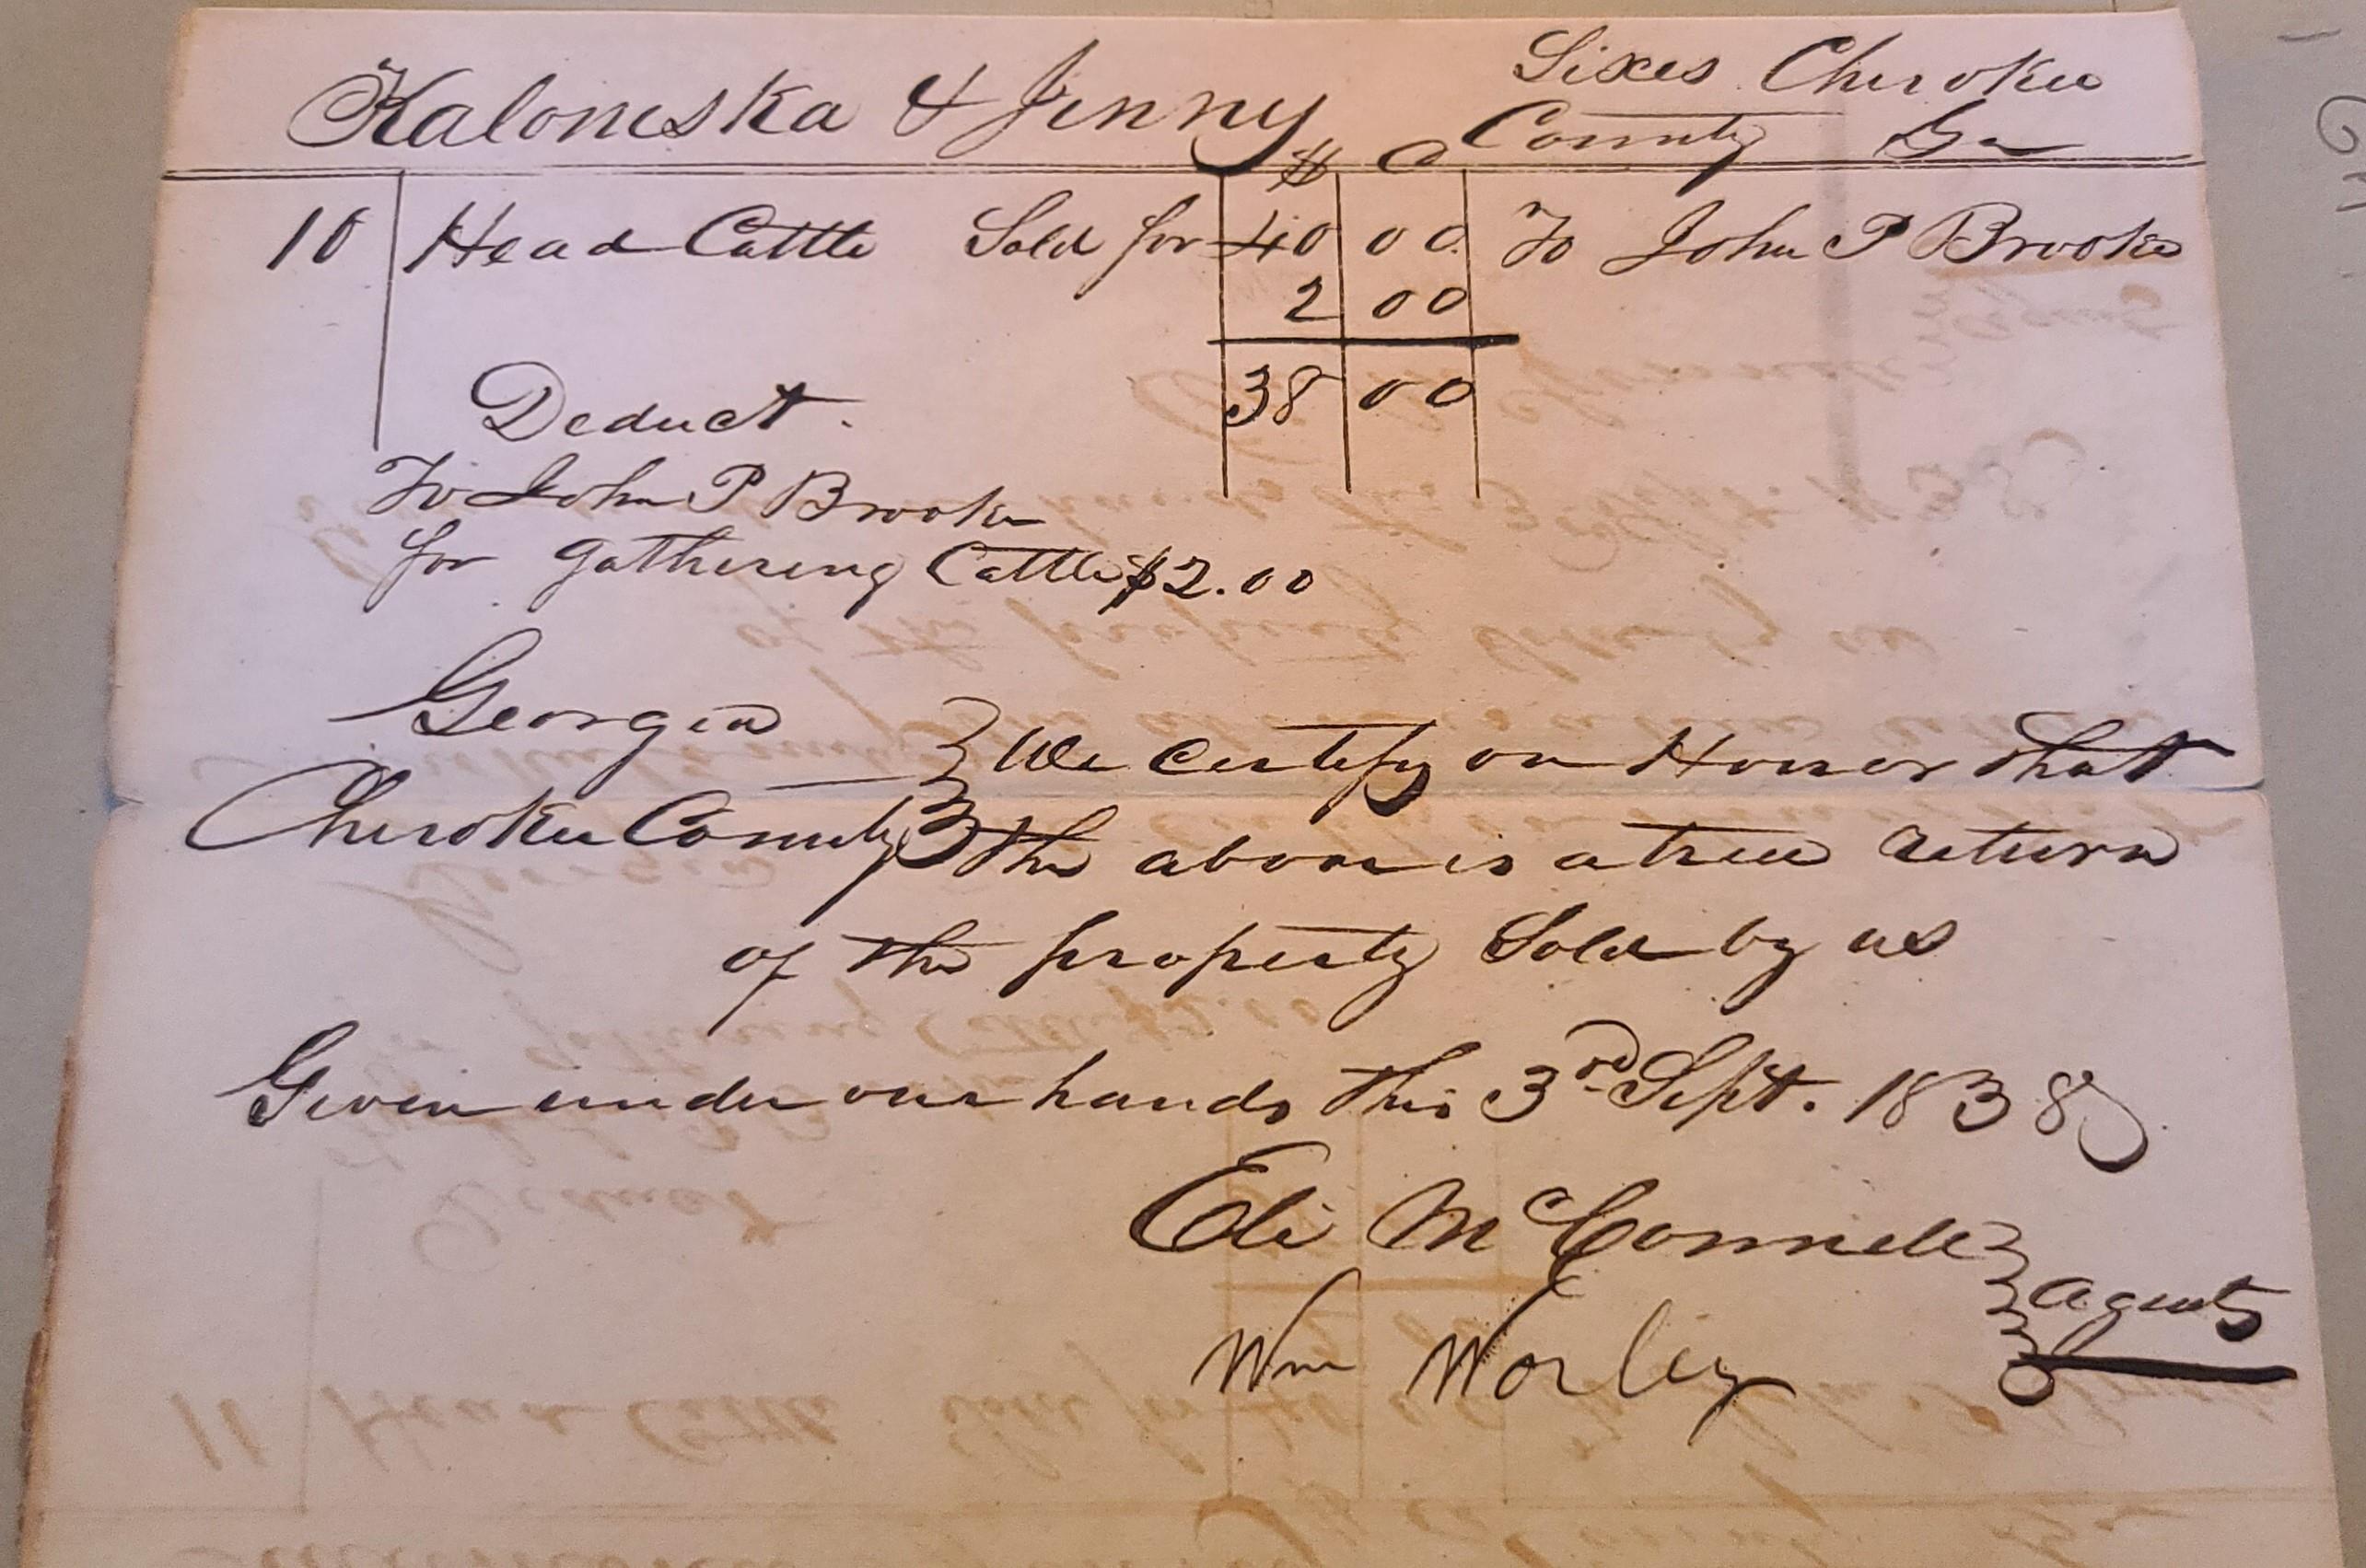 Kaloneska & Jenny
Sixes Cherokee
County Ga
$ C
10 Head Cattle Sold for 40 00 To John P Brooke
2 00
38 00
Deduct.
To John P Brooke
for gathering Cattle $2.00
Georgia } We Certify on Honor that
Cherokee County } the above is a true return
of the property Sold by us
Given under our hands this 3rd Sept. 1838
Eli McConnell } agents
Wm Worley